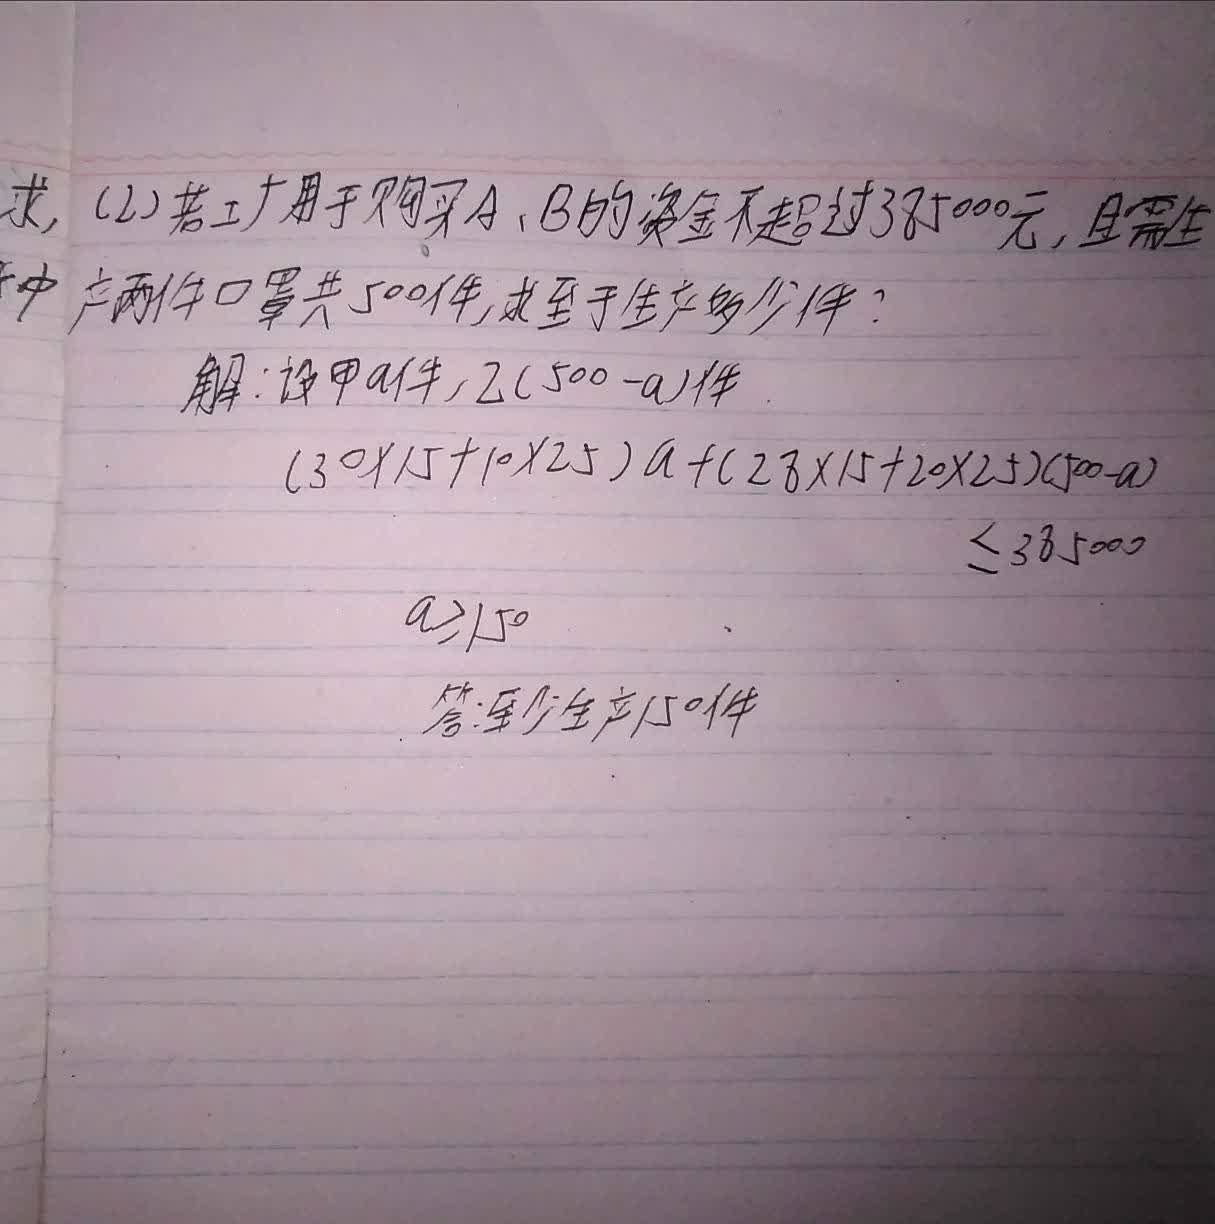 求,(2)若工厂用于购买A、B的资金不超过385000元,且需生
中产两件口罩共500件,求至于生产多少件?
解:设甲a件,乙(500-a)件
(30×15+10×25)a+(28×15+20×25)(500-a)
≤385000
a≥150
答:至少生产150件